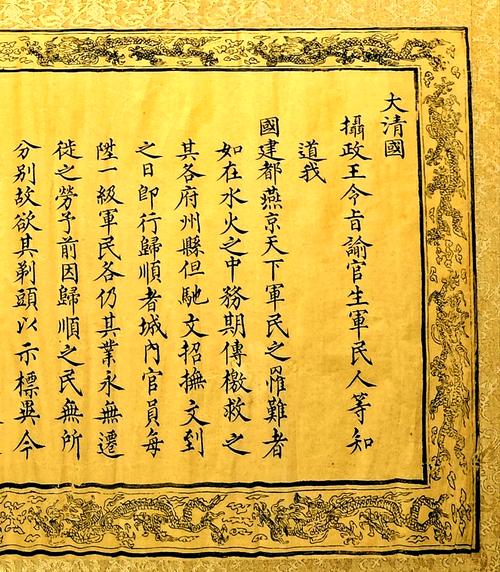 大清國
攝政王令旨諭官生軍民人等知
道我
國建都燕京天下軍民之罹難者
如在水火之中務期傳檄救之
其各府州縣但馳文招撫文到
之日即行歸順者城內官員每
陞一級軍民各仍其業永無遷
徙之勞予前因歸順之民無所
分別故欲其剃頭以示標異今